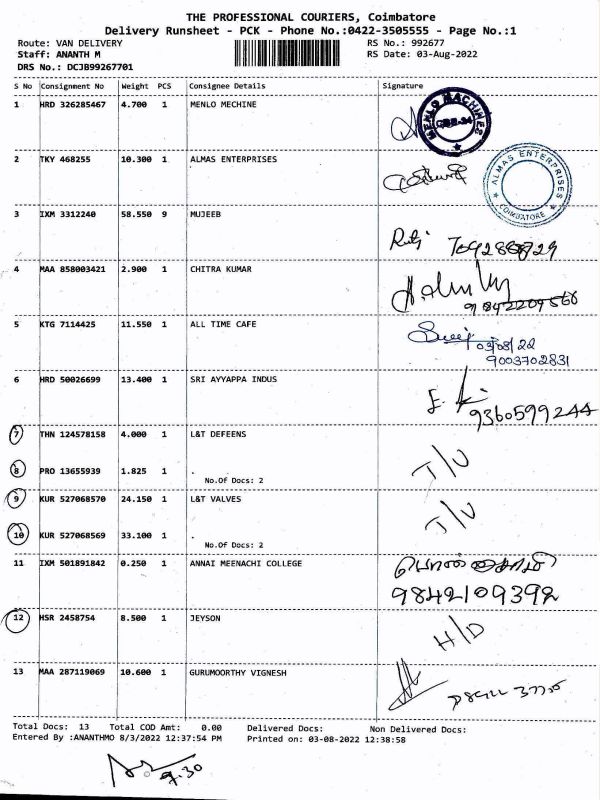 THE PROFESSIONAL COURIERS, Coimbatore
Delivery Runsheet - PCK - Phone No.:0422-3505555 - Page No.:1
Route: VAN DELIVERY RS No.: 992677
Staff: ANANTH M RS Date: 03-Aug-2022
DRS No.: DCJB99267701
S No Consignment No Weight PCS Consignee Details Signature
1 HRD 326285467 4.700 1 MENLO MECHINE
MENLO MACHINES
CBE-24
2 TKY 468255 10.300 1 ALMAS ENTERPRISES
ALMAS ENTERPRISES
COIMBATORE
3 IXM 3312240 58.550 9 MUJEEB
4 MAA 858003421 2.900 1 CHITRA KUMAR
9842209566
5 KTG 7114425 11.550 1 ALL TIME CAFE
03/08/22
9003702831
6 HRD 50026699 13.400 1 SRI AYYAPPA INDUS
9360599244
7 THN 124578158 4.000 1 L&T DEFEENS
T/U
8 PRO 13655939 1.825 1 .
No.Of Docs: 2
9 KUR 527068570 24.150 1 L&T VALVES
T/U
10 KUR 527068569 33.100 1 .
No.Of Docs: 2
11 IXM 501891842 0.250 1 ANNAI MEENACHI COLLEGE
9842109392
12 HSR 2458754 8.500 1 JEYSON
H/D
13 MAA 287119069 10.600 1 GURUMOORTHY VIGNESH
Total Docs: 13 Total COD Amt: 0.00 Delivered Docs: Non Delivered Docs:
Entered By :ANANTHMO 8/3/2022 12:37:54 PM Printed on: 03-08-2022 12:38:58
9.30